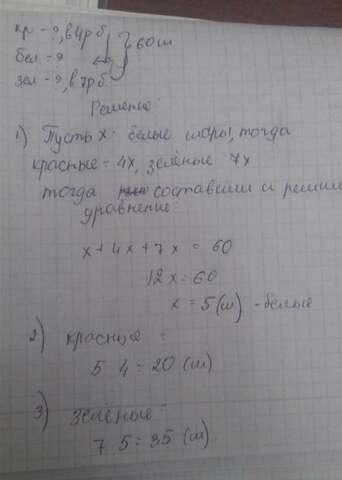 кр - ?, в 4 р б.
бел - ? } 60 ш
зел - ?, в 7 р б.
Решение:
1) Пусть x - белые шары, тогда
красные = 4x, зелёные 7x
тогда составим и решим
уравнение:
x + 4x + 7x = 60
12x = 60
x = 5 (ш) - белые
2) красные =
5 4 = 20 (ш)
3) зелёные =
7 5 = 35 (ш)